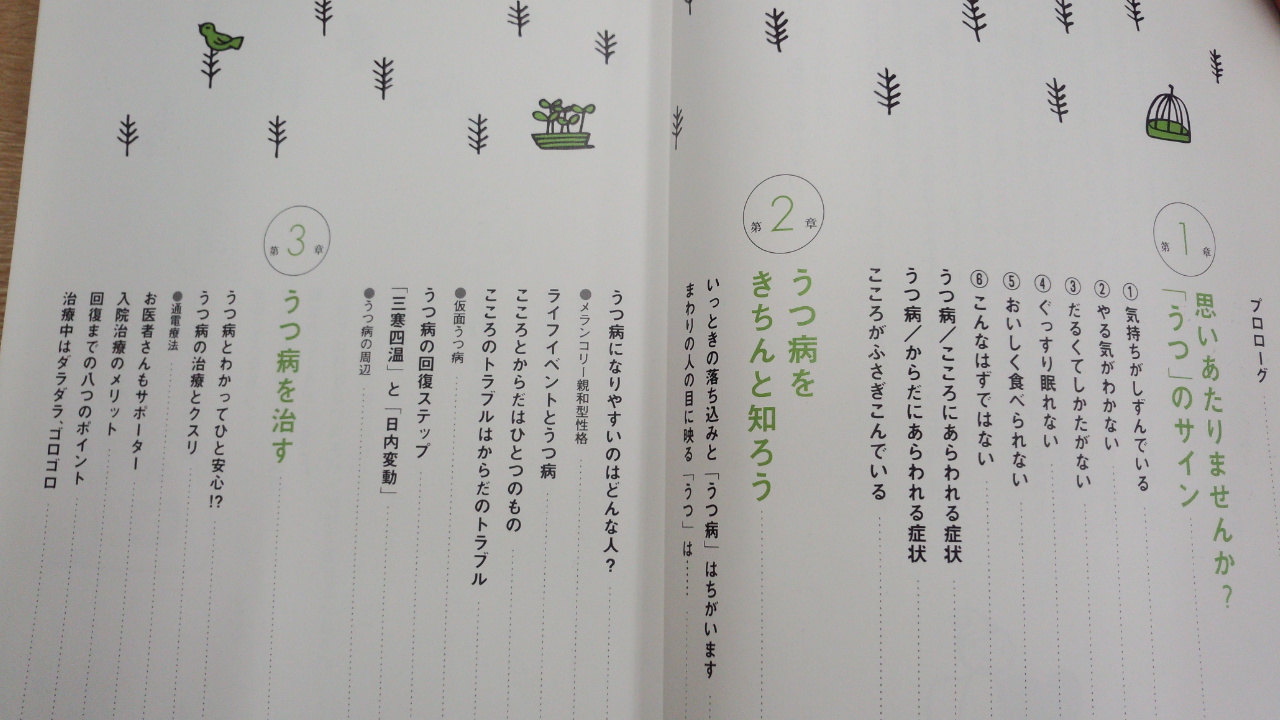 プロローグ
第1章
思いあたりませんか?
「うつ」のサイン
①気持ちがしずんでいる
②やる気がわかない
③だるくてしかたがない
④ぐっすり眠れない
⑤おいしく食べられない
⑥こんなはずではない
うつ病/こころにあらわれる症状
うつ病/からだにあらわれる症状
こころがふさぎこんでいる
第2章
うつ病を
きちんと知ろう
いっときの落ち込みと「うつ病」はちがいます
まわりの人の目に映る「うつ」は……
うつ病になりやすいのはどんな人?
●メランコリー親和型性格
ライフイベントとうつ病
こころとからだはひとつのもの
こころのトラブルはからだのトラブル
●仮面うつ病
うつ病の回復ステップ
「三寒四温」と「日内変動」
●うつ病の周辺
第3章
うつ病を治す
うつ病とわかってひと安心!?
うつ病の治療とクスリ
●通電療法
お医者さんもサポーター
入院治療のメリット
回復までの八つのポイント
治療中はダラダラ、ゴロゴロ